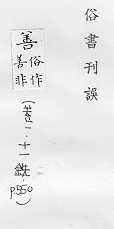 俗書刊誤
善俗作善非
(卷一.十一銑.p550)